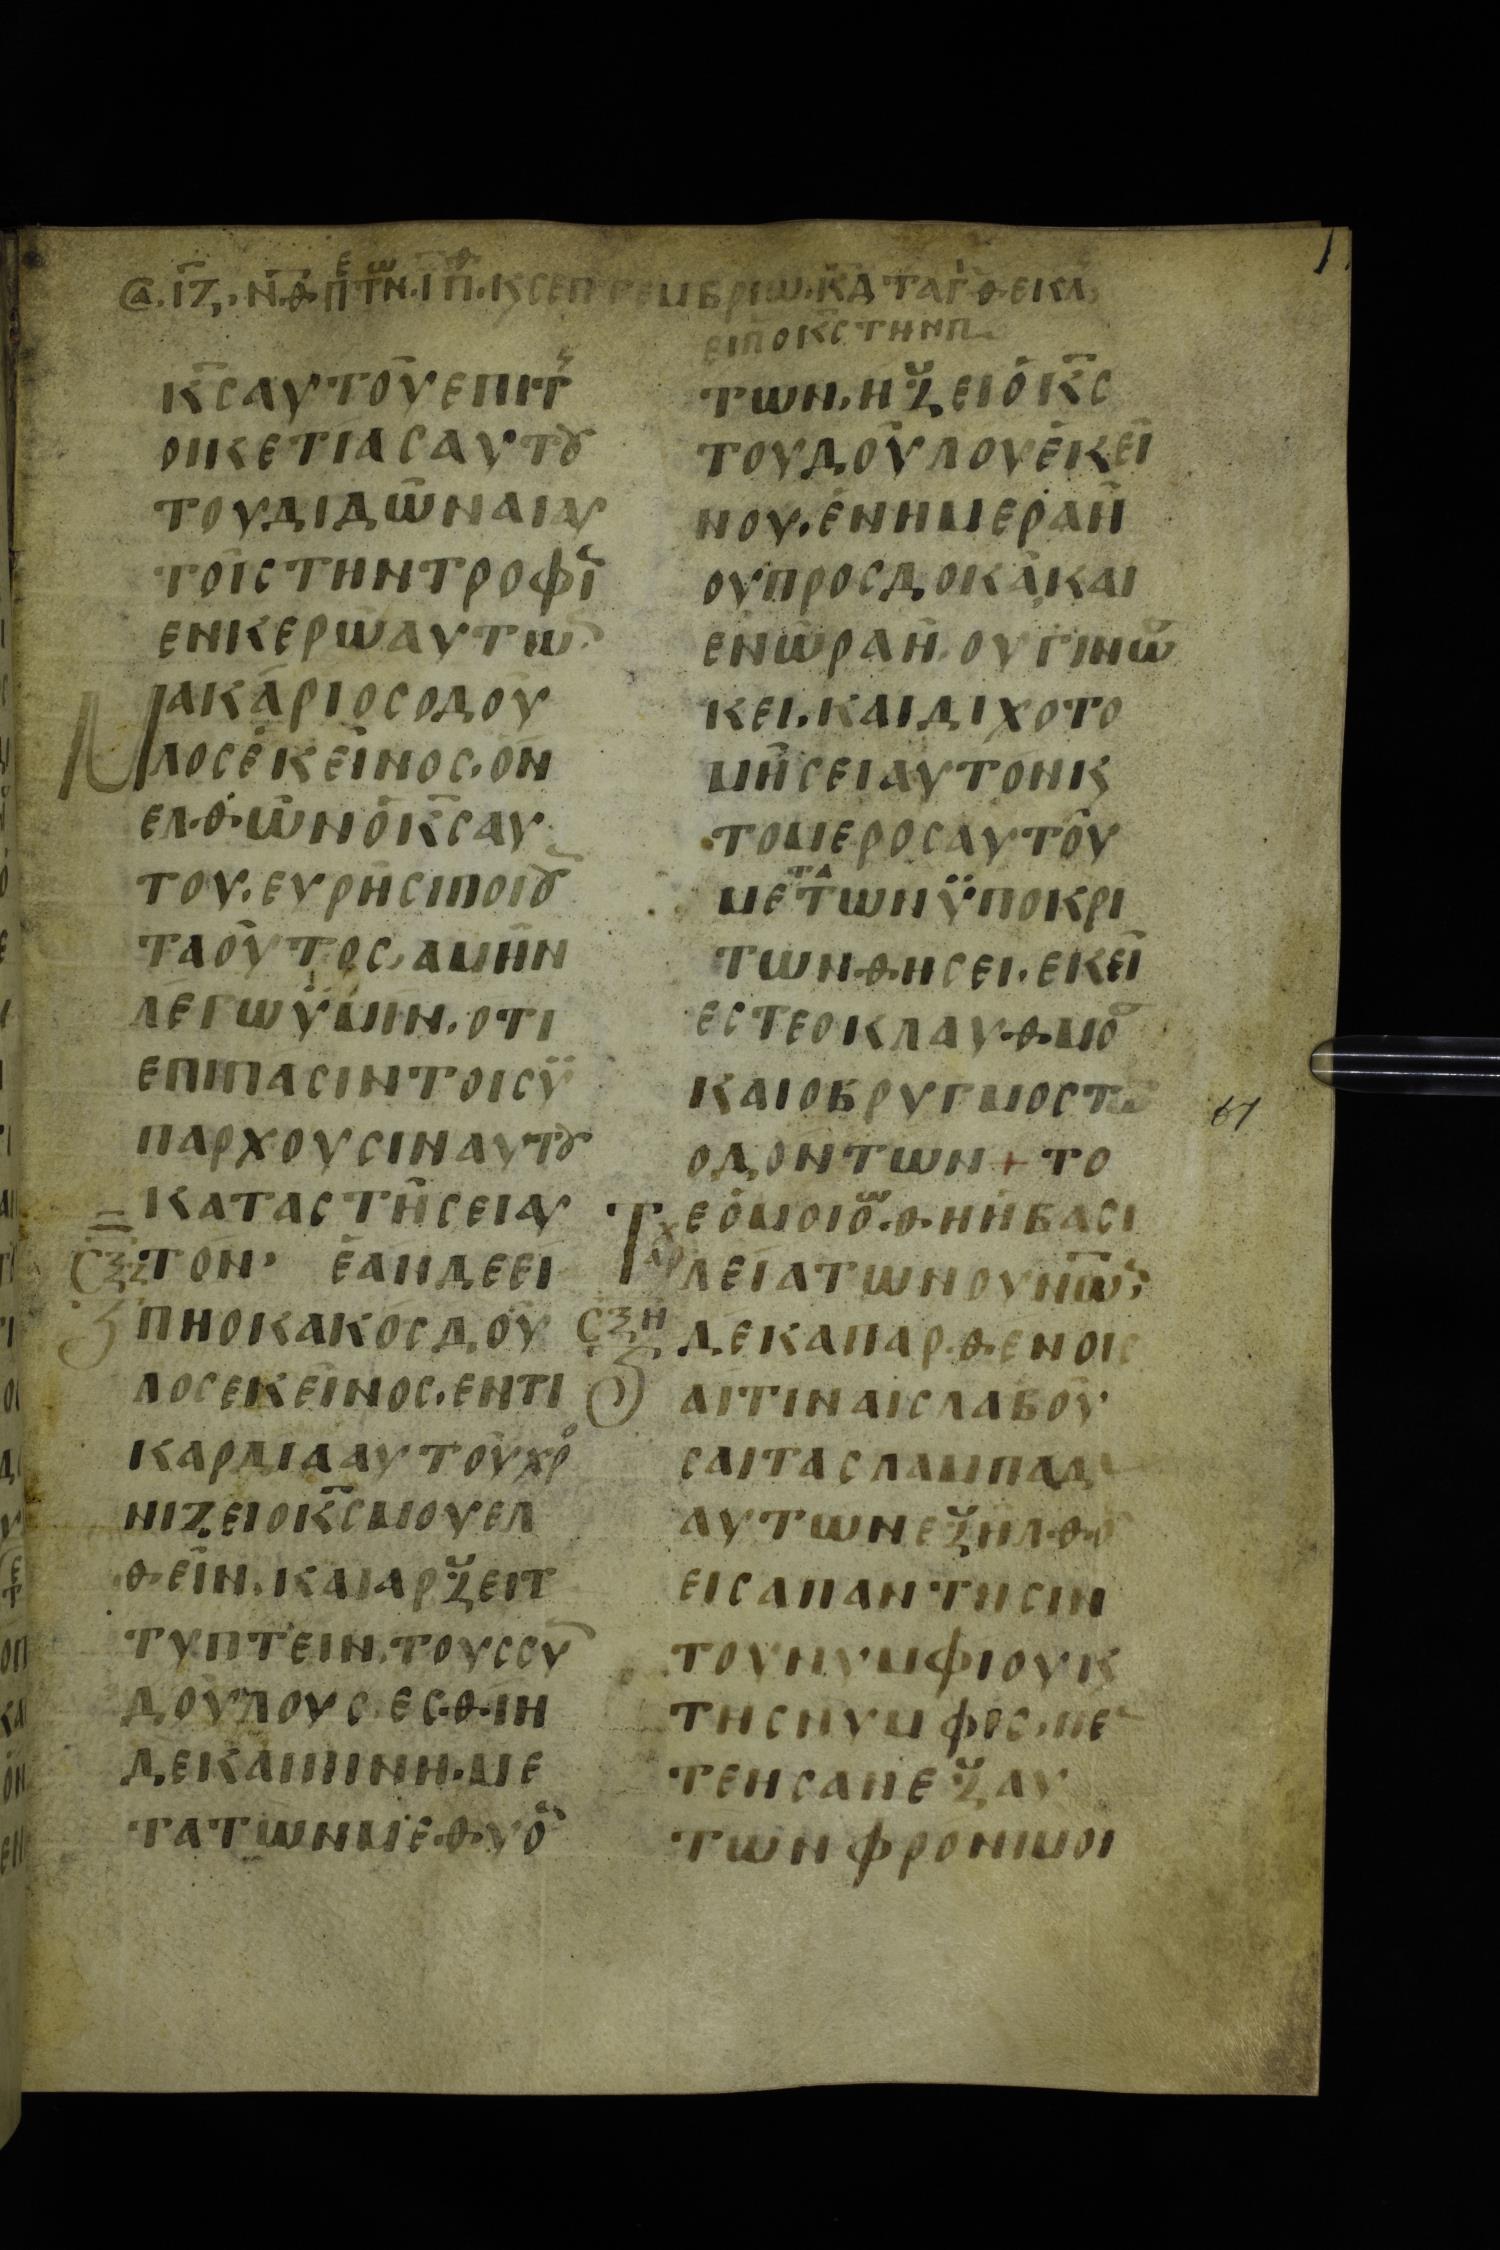 Σα. ΙΖ, Ν.Θ. ΠΤΩΝ. Ι Π. Κ ΣΕΠΤΕΜΒΡΙΩ. ΚΔ ΤΑΓ. Θ. ΕΚΛ
ΕΙΠΟΚΣΤΗΝΠ
Κ̅ΣΑΥΤΟΥΕΠΙΤ
ΟΙΚΕΤΙΑΣΑΥΤȢ
ΤΟΥΔΙΔΩΝΑΙΑΥ
ΤΟΙΣΤΗΝΤΡΟΦΙ
ΕΝΚΕΡΩΑΥΤΩ
ΜΑΚΑΡΙΟΣΟΔΟΥ
ΛΟΣΕΚΕΙΝΟΣ·ΟΝ
ΕΛΘΩΝΟΚ̅ΣΑΥ
ΤΟΥ·ΕΥΡΗΣΙΠΟΙȢ
ΤΑΟΥΤΟΣ·ΑΜΗΝ
ΛΕΓΩΫΜΙΝ·ΟΤΙ
ΕΠΙΠΑΣΙΝΤΟΙΣΫ
ΠΑΡΧΟΥΣΙΝΑΥΤȢ
ΚΑΤΑΣΤΗΣΕΙΑΥ
ΣΞΖ ΤΟΝ· ΕΑΝΔΕΕΙ
ΠΗΟΚΑΚΟΣΔΟΥ
ΛΟΣΕΚΕΙΝΟΣ·ΕΝΤΙ
ΚΑΡΔΙΑΑΥΤΟΥΧΡΟ
ΝΙΖΕΙΟΚ̅ΣΜΟΥΕΛ
ΘΕΙΝ·ΚΑΙΑΡΞΕΙΤ
ΤΥΠΤΕΙΝ·ΤΟΥΣΣΥ
ΔΟΥΛΟΥΣ ΕΣΘΙΗ
ΔΕΚΑΙΠΙΝΗ·ΜΕ
ΤΑΤΩΝΜΕΘΥΟ
ΤΩΝ·ΗΞΕΙΟΚ̅Σ
ΤΟΥΔΟΥΛΟΥΕΚΕΙ
ΝΟΥ·ΕΝΗΜΕΡΑΗ
ΟΥΠΡΟΣΔΟΚΑΚΑΙ
ΕΝΩΡΑΗ·ΟΥΓΙΝΩ
ΚΕΙ·ΚΑΙΔΙΧΟΤΟ
ΜΗΣΕΙΑΥΤΟΝΚ
ΤΟΜΕΡΟΣΑΥΤΟΥ
ΜΕΤΑΤΩΝΫΠΟΚΡΙ
ΤΩΝΘΗΣΕΙ·ΕΚΕΙ
ΕΣΤΕΟΚΛΑΥΘΜΟ
ΚΑΙΟΒΡΥΓΜΟΣΤΩ
ΟΔΟΝΤΩΝ + ΤΟ
ΤΕΟΜΟΙΩΘΗΗΒΑΣΙ
ΑΡΧ ΛΕΙΑΤΩΝΟΥΝΩ
ΣΞΗ ΔΕΚΑΠΑΡΘΕΝΟΙΣ
ΑΙΤΙΝΑΙΣΛΑΒΟΥ
ΣΑΙΤΑΣΛΑΜΠΑΔ
ΑΥΤΩΝΕΞΗΛΘΟ
ΕΙΣΑΠΑΝΤΗΣΙΝ
ΤΟΥΝΥΜΦΙΟΥΚ
ΤΗΣΝΥΜΦΟΣ·ΠΕ
ΤΕΗΣΑΝΕΞΑΥ
ΤΩΝΦΡΟΝΙΜΟΙ
61